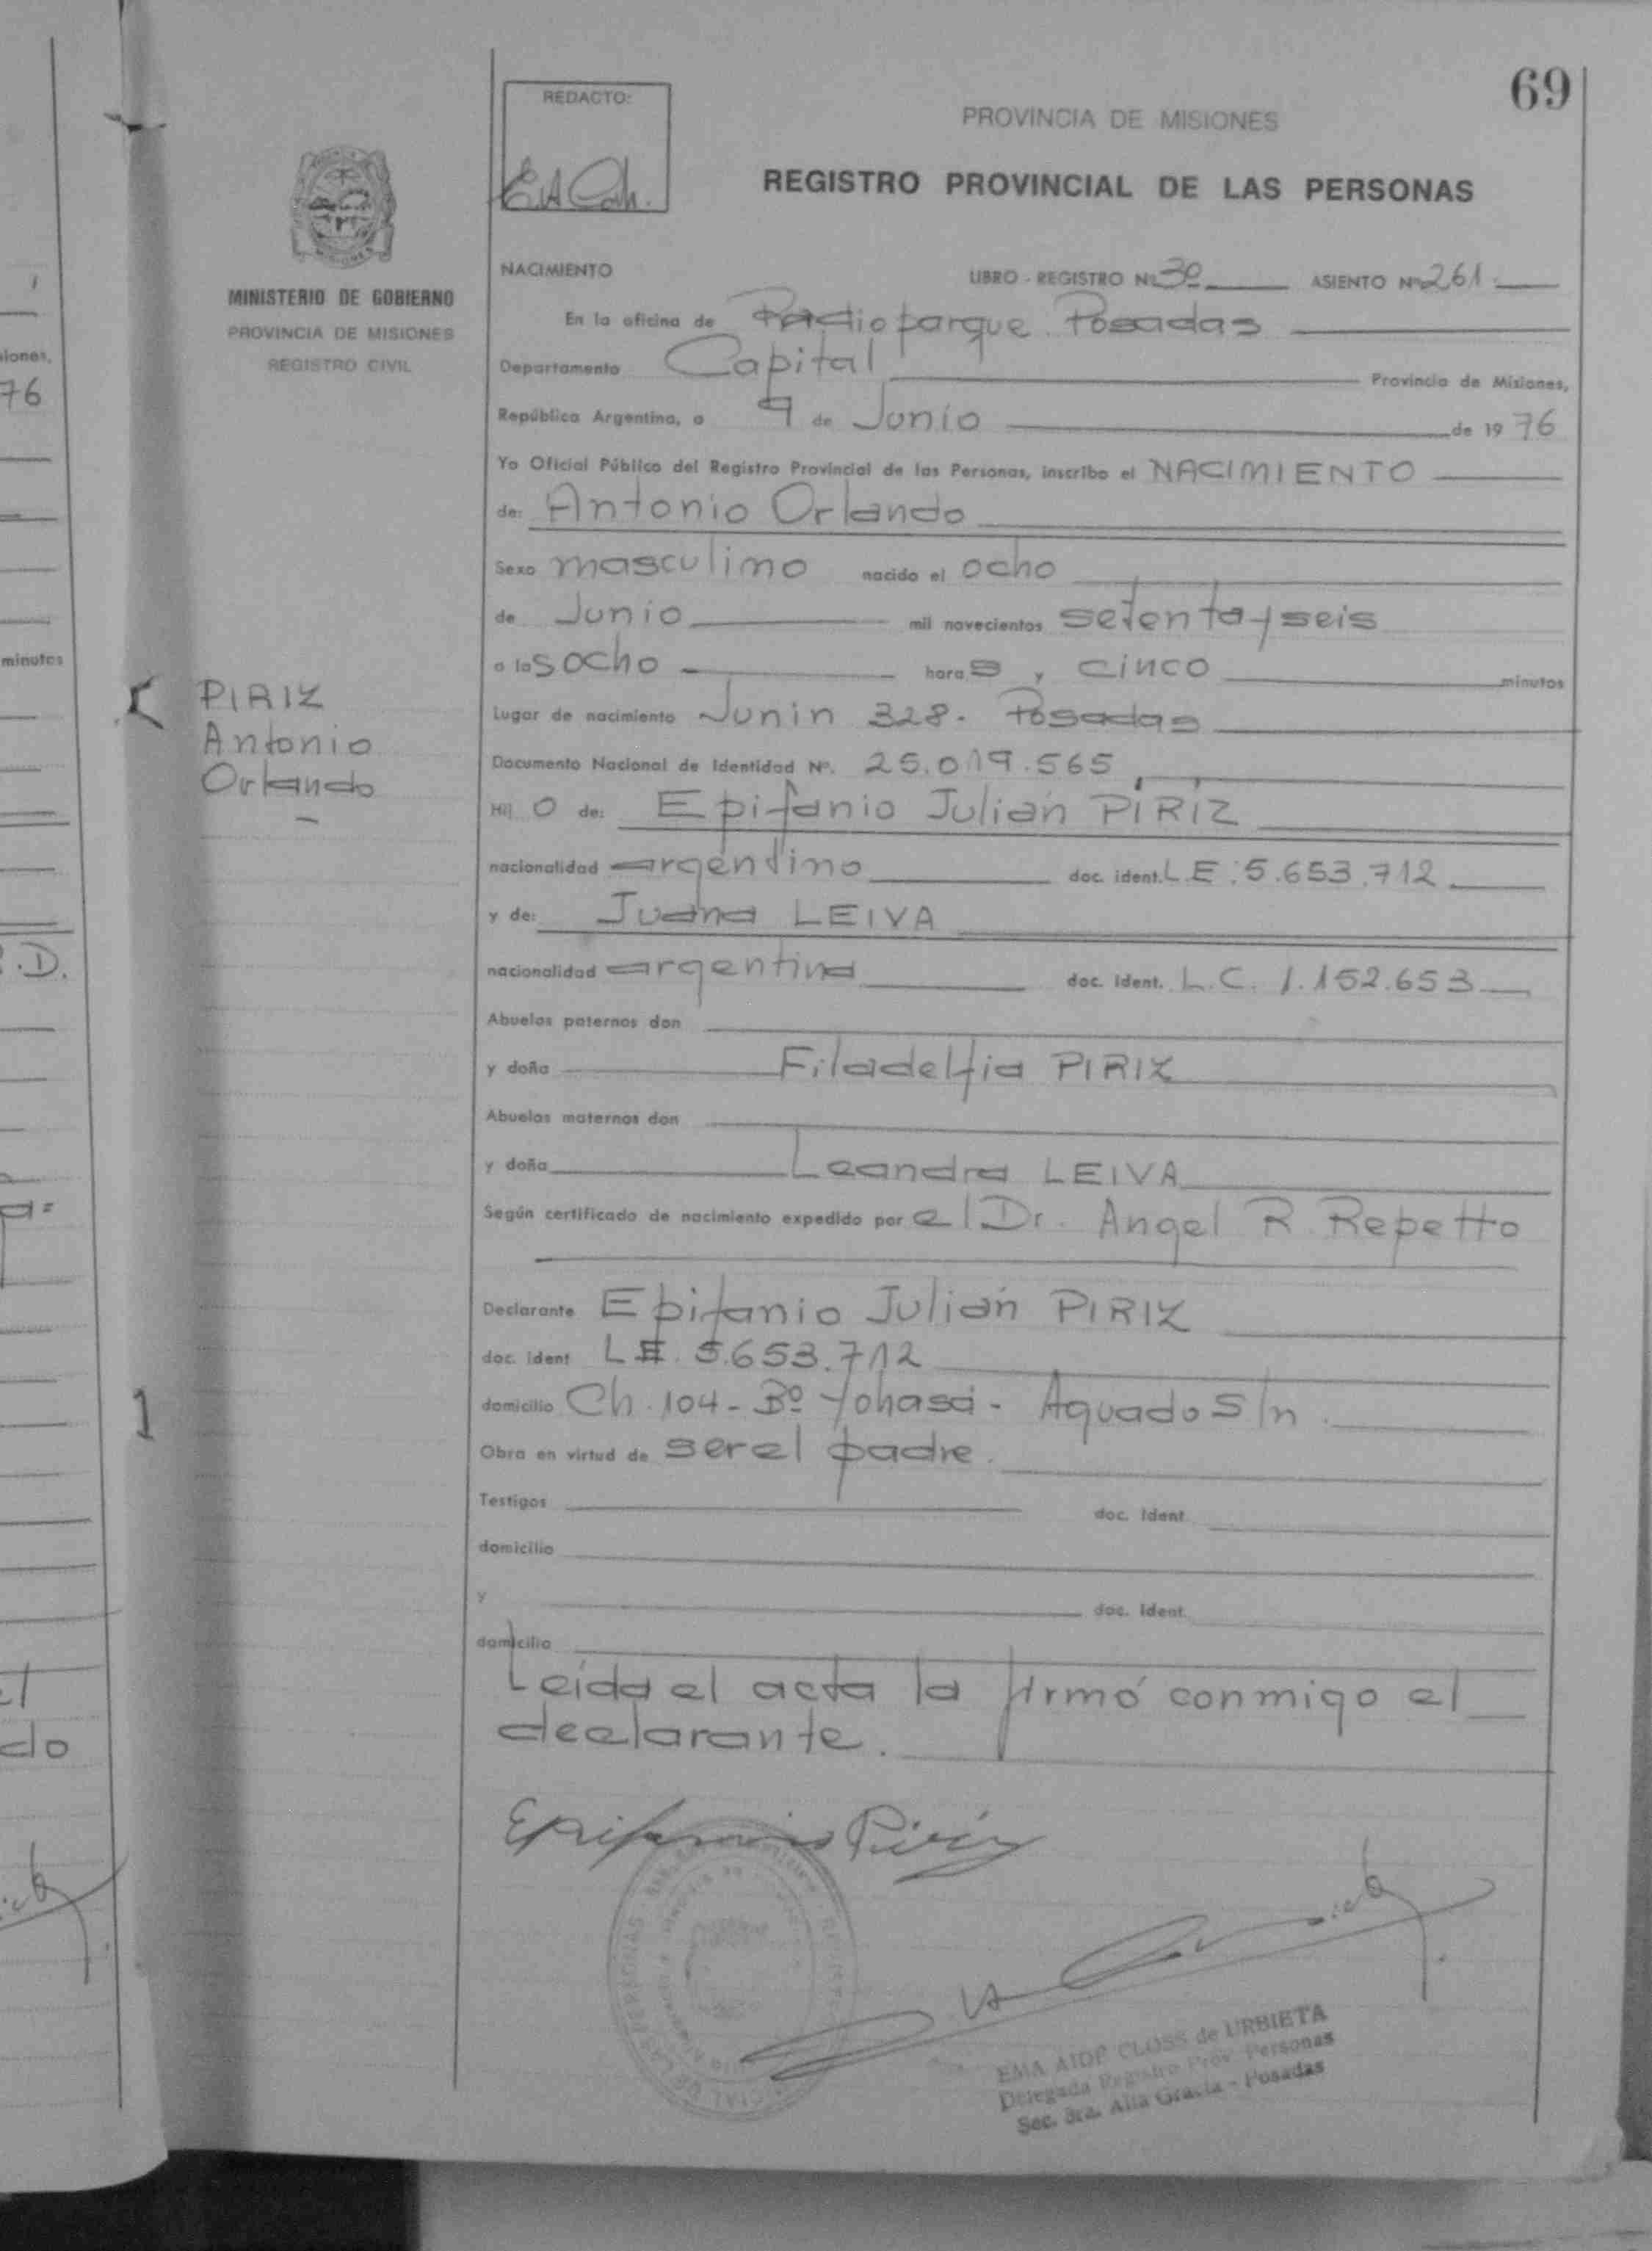 69
REDACTO:
PROVINCIA DE MISIONES
REGISTRO PROVINCIAL DE LAS PERSONAS
MINISTERIO DE GOBIERNO
PROVINCIA DE MISIONES
REGISTRO CIVIL
NACIMIENTO LIBRO - REGISTRO Nº 3º ASIENTO Nº 261.
En la oficina de Radioparque Posadas
Departamento Capital Provincia de Misiones,
República Argentina, a 9 de Junio de 1976
Yo Oficial Público del Registro Provincial de las Personas, inscribo el NACIMIENTO
de: Antonio Orlando
Sexo masculino nacido el ocho
de Junio mil novecientos setenta y seis
a las ocho horas y cinco minutos
PIRIZ
Antonio
Orlando
Lugar de nacimiento Junin 328. Posadas
Documento Nacional de Identidad Nº. 25.019.565
Hijo de: Epifanio Julián PIRIZ
nacionalidad argentino doc. ident. L.E. 5.653.712
y de: Juana LEIVA
nacionalidad argentina doc. Ident. L.C. 1.152.653
Abuelos paternos don
y doña Filadelfia PIRIZ
Abuelos maternos don
y doña Leandra LEIVA
Según certificado de nacimiento expedido por el Dr. Angel R. Repetto
Declarante Epifanio Julián PIRIZ
doc. ident LE. 5.653.712
domicilio Ch. 104 - Bº Yohasá - Aguado S/n.
Obra en virtud de ser el padre.
Testigos doc. Ident.
domicilio
y doc. Ident.
domicilio
Leida el acta la firmó conmigo el
declarante.
Epifanio Piriz
EMA AIDE CLOSS de URBIETA
Delegada Registro Prov. Personas
Sec. 3ra. Alta Gracia - Posadas
iones,
76
minutos
.D.
do